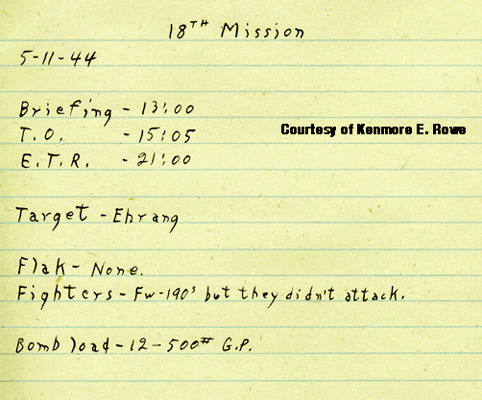 18TH Mission
5-11-44
Briefing - 13:00
T.O. - 15:05
Courtesy of Kenmore E. Rowe
E.T.R. - 21:00
Target - Ehrang
Flak - None.
Fighters - Fw-190s but they didn't attack.
Bomb load - 12 - 500# G.P.